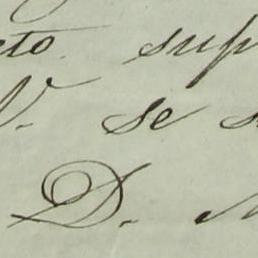 cto sup
V. se s
D.